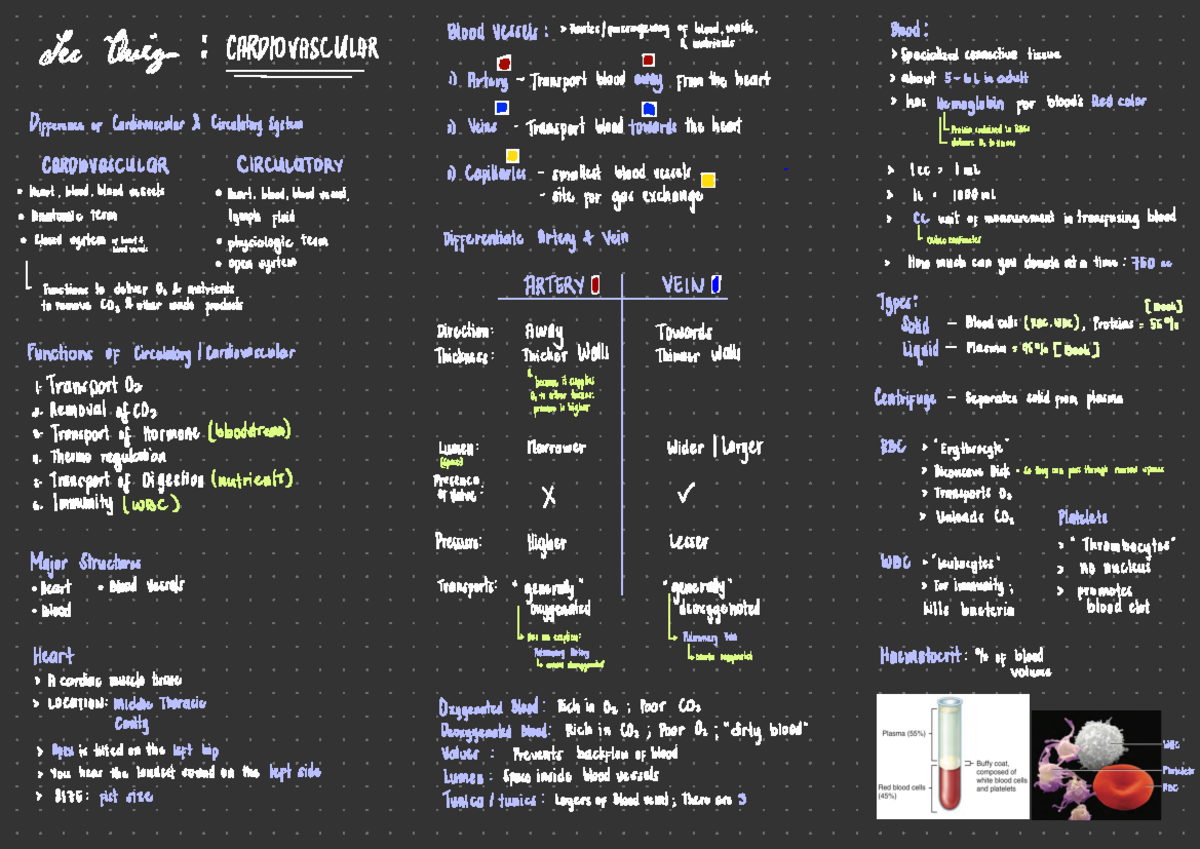 Lec Quiz : CARDIOVASCULAR
Difference of Cardiovascular & Circulatory System
CARDIOVASCULAR
• Heart, blood, blood vessels
• Anatomic term
• Closed system of heart & blood vessels
Functions to deliver O₂ & nutrients
to remove CO₂ & other waste products
CIRCULATORY
• Heart, blood, blood vessel,
lymph fluid
• physiologic term
• open system
Functions of Circulatory / Cardiovascular
1. Transport O₂
2. Removal of CO₂
3. Transport of Hormone (bloodstream)
4. Thermo regulation
5. Transport of Digestion (nutrients)
6. Immunity (WBC)
Major Structures
• heart • Blood vessels
• Blood
Heart
> A cardiac muscle tissue
> LOCATION: Middle Thoracic
Cavity
> Apex is tilted on the left hip
> You hear the loudest sound on the left side
> SIZE: fist size
Blood Vessels: > Routes/passageway of blood, waste,
& nutrients
1) Artery - Transport blood away from the heart
2) Veins - Transport blood towards the heart
3) Capillaries - smallest blood vessels
- site for gas exchange
Differentiate Artery & Vein
ARTERY VEIN
Direction: Away Towards
Thickness: Thicker Walls Thinner walls
because it supplies
O₂ to other tissues;
pressure is higher
Lumen: Narrower Wider / Larger
(space)
Presence
of Valve: X ✓
Pressure: Higher Lesser
Transports: "generally" "generally"
oxygenated deoxygenated
Has an exception: Pulmonary Vein
Pulmonary Artery carries oxygenated
carries deoxygenated
Oxygenated Blood: Rich in O₂ ; Poor CO₂
Deoxygenated Blood: Rich in CO₂ ; Poor O₂ ; "dirty blood"
Valves : Prevents backflow of blood
Lumen : Space inside blood vessels
Tunica / tunics : Layers of blood vessel ; There are 3
Blood:
> Specialized connective tissue
> about 5-6L in adult
> has Hemoglobin for blood's Red color
Protein contained in RBCs
delivers O₂ to tissues
> 1 cc = 1 mL
> 1L = 1000 mL
> CC unit of measurement in transfusing blood
Cubic centimeter
> How much can you donate at a time : 750 cc
Types: [Book]
Solid - Blood cells (RBC, WBC), Proteins = 55%
Liquid - Plasma = 45% [Book]
Centrifuge - Separates solid from plasma
RBC > "Erythrocyte"
> Biconcave Disk - so they can pass through narrow spaces
> Transports O₂
> Unloads CO₂
WBC > "Leukocytes"
> For immunity ;
kills bacteria
Platelets
> "Thrombocytes"
> no nucleus
> promotes
blood clot
Haematocrit: % of blood
volume
Plasma (55%)
Buffy coat,
composed of
white blood cells
and platelets
Red blood cells
(45%)
WBC
Platelets
RBC